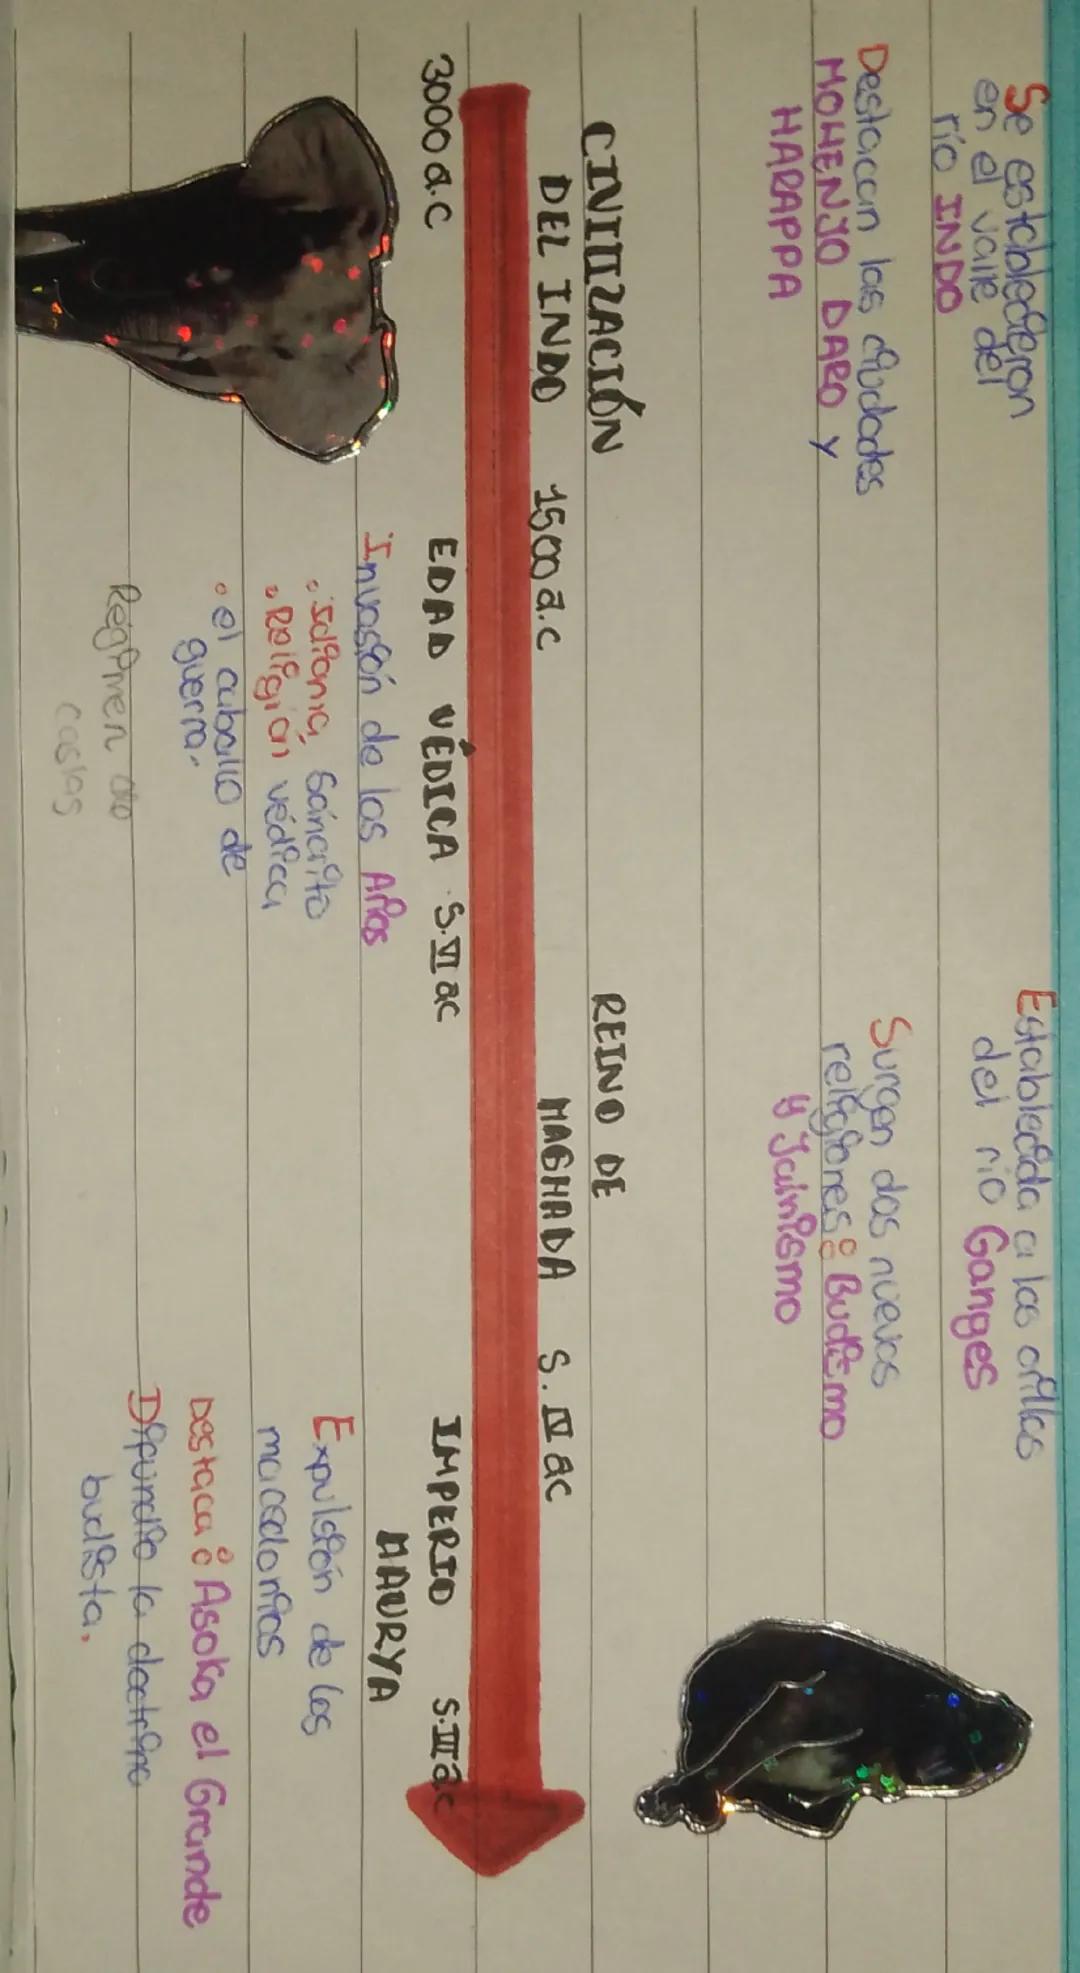 Se establecieron
en el valle del
río INDO
Destacan las ciudades
MOHENJO DARO y
HARAPPA
CIVILIZACIÓN
DEL INDO
3000 a.c
1500 a.c
EDAD VÉDICA S.VI ac
Invasión de los Arios
• Idioma: Sánscrito
• Religión védica
• el caballo de
guerra.
Régimen de
castas
Establecida a las orillas
del río Ganges
Surgen dos nuevas
religiones: Budismo
y Jainismo
REINO DE
MAGHADA S. IV ac
IMPERIO S.III ac
MAURYA
Expulsión de los
macedonios
Destaca: Asoka el Grande
Difundió la doctrina
budista.